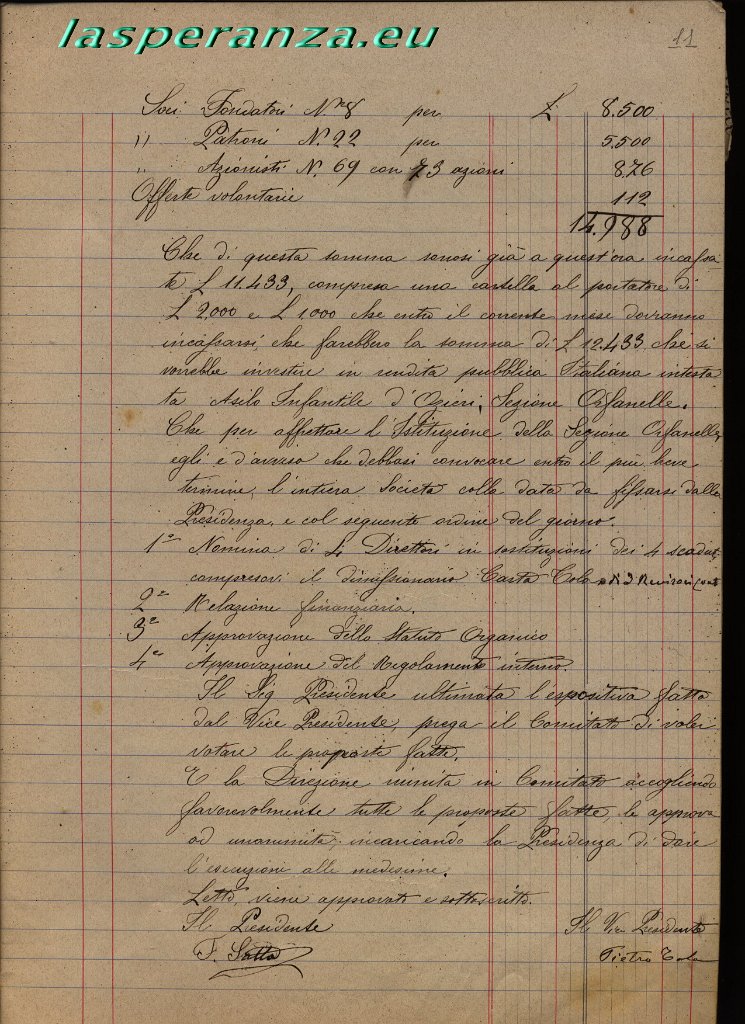 lasperanza.eu
11
Soci Fondatori N. 8 per £ 8.500
" Patroni N. 22 per 5.500
" Azionisti N. 69 con 73 azioni 876
Offerte volontarie 112
14.988
Che di questa somma sonosi già a quest'ora incassa
te £ 11.433, compresa una cartella al portatore di
£ 2.000 e £ 1000 che entro il corrente mese dovranno
incassarsi, che farebbero la somma di £ 12433 che si
vorrebbe investire in rendita pubblica Italiana intesta
ta Asilo Infantile d'Ozieri, Sezione Orfanelle.
Che per affrettare l'Istituzione della Sezione Orfanelle,
egli è d'avviso che debbasi convocare entro il più breve
termine, l'intiera Società colla data da fissarsi dalla
Presidenza, e col seguente ordine del giorno.
1° Nomina di 4 Direttori in sostituzioni dei 4 scaduti
compresovi il dimissionario Carta Cola e di 2 Revisori
2° Relazione finanziaria.
3° Approvazione dello Statuto Organico
4° Approvazione del Regolamento interno.
Il Sig Presidente ultimata l'espositiva fatta
dal Vice Presidente, prega il Comitato di voler
votare le proposte fatte.
E la Direzione riunita in Comitato accogliendo
favorevolmente tutte le proposte fatte, le approva
ad unanimità, incaricando la Presidenza di dare
l'esecuzioni alle medesime.
Letto, viene approvato e sottoscritto.
Il Presidente Il Vice Presidente
F. Satta Pietro Tola